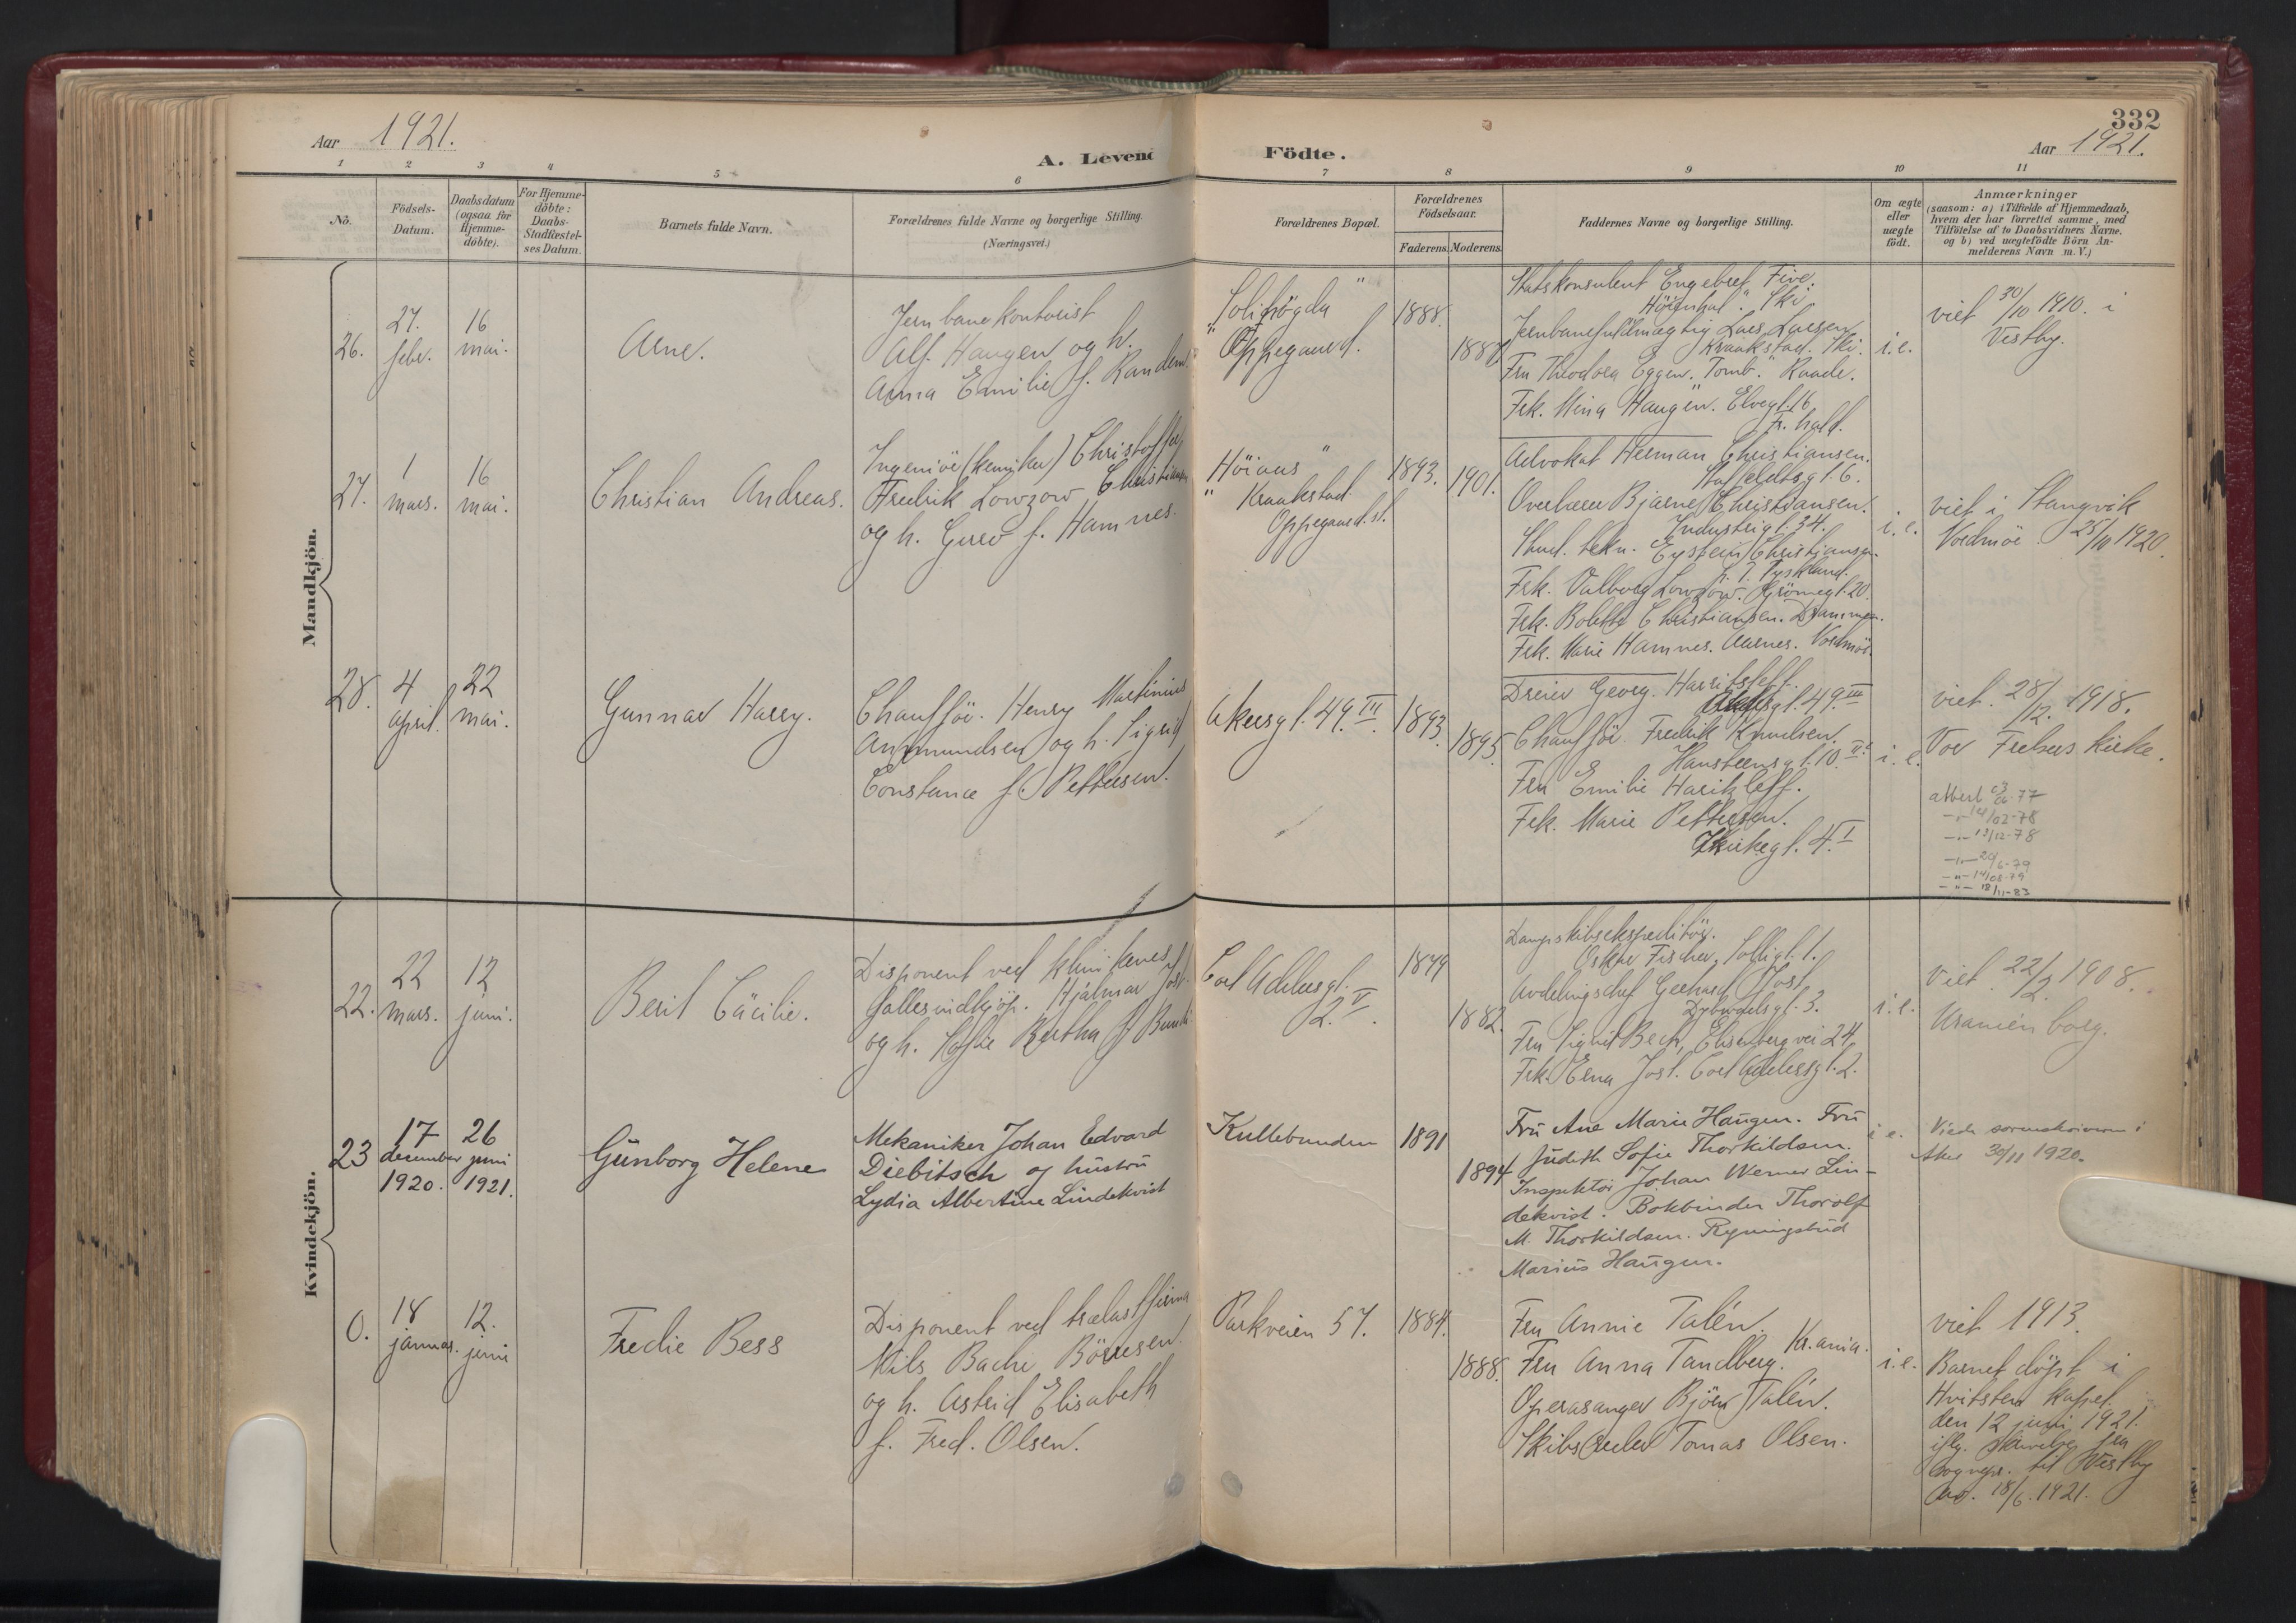 332
Aar 1921.
A. Levend
Födte.
Aar 1921.
1 2 3 4 5 6 7 8 9 10 11
No.
Födsels-
Datum.
Daabsdatum
(ogsaa for
Hjemme-
döbte).
For Hjemme-
döbte:
Daabs-
Stadfæstel-
ses Datum.
Barnets fulde Navn.
Forældrenes fulde Navne og borgerlige Stilling.
(Næringsvei.)
Forældrenes Bopæl.
Forældrenes
Födselsaar.
Faderens. Moderens.
Faddernes Navne og borgerlige Stilling.
Om ægte
eller
uægte
födt.
Anmærkninger
(saasom: a) i Tilfælde af Hjemmedaab,
hvem der har forrettet samme, med
Tilföielse af to Daabsvidners Navne.
og b) ved uægtefödte Börn An-
melderens Navn m. V.)
Mandkjön.
26.
27.
febr.
16
mai.
Arne.
Jernbanekontorist
Alf. Haugen og h.
Anna Emilie f. Randem
"Solihögda"
Oppegaard.
1888.
1887
Statskonsulent Engebret Five.
"Höienhal". Ski
Jernbanefuldmægtig Lars Larsen
Kraakstad. Ski.
Fru Theodora Eggen. "Tomb." Raade.
Frk. Mina Haugen. Elvegt. 16
Fr. hald.
i.e.
viet 30/10 1910. i
Vestby.
27.
1
mars.
16
mai.
Christian Andreas.
Ingeniör (kemiker) Christoffer
Fredrik Lowzow Christiansen
og h. Guro f. Hamnes.
"Höiaas"
Kraakstad
Oppegaard. st.
1893.
1901.
Advokat Herman Christiansen.
Staffeldtsgt. 6.
Overlærer Bjarne Christiansen.
Industrigt. 34.
Stud. tekn. Eystein Christiansen.
p. t. Tyskland.
Frk. Valborg Lowzow. Grönnegt. 20.
Frk. Bolette Christiansen. Drammen.
Frk. Marie Hamnes. Aarnes. Nordmöre.
i. e.
viet i Stangvik
Nordmöre 25/10 1920.
28.
4
april.
22
mai.
Gunnar Harry.
Chaufför. Henry Martinius
Ammundsen og h. Sigrid
Constance f. Pettersen.
Akersgt. 49. III
1893.
1895.
Dreier Georg. Haritsleff.
Akersgt. 49. III
Chaufför Fredrik Knudsen.
Hansteensgt. 10. II
Fru Emilie Haritzleff.
Frk. Marie Pettersen.
Kirkegt. 4. I
i. e.
viet. 28/12. 1918.
Vor Frelsers kirke.
attest 03/06-77
-"- 14/02-78
-"- 13/12-78
-"- 20/6-79
-"- 14/08-79
-"- 18/11-83
Kvindekjön.
22.
22
mars.
12
juni.
Berit Cäcilie.
Disponent ved klinikenes
fællesindkjöp. Hjalmar Jost
og h. Sofie Bertha f. Bund
Cort Adelersgt.
2. V.
1879
1882.
Dampskibsekspeditör.
Oskar Fischer, Solligt. 1.
Avdelingschef Gerhard Jost
Dybwadsgt. 3.
Fru Sigrid Bech, Elisenberg vei 24.
Frk. Erna Jost. Cort Adelersgt. 2.
i. e.
Viet. 22/2. 1908.
Uranienborg.
23
17
december
1920.
26
juni
1921.
Gunborg Helene
Mekaniker Johan Edvard
Diebitsch og hustru
Lydia Albertine Lindekvist
Kullebunden
1891
1894
Fru Ane Marie Haugen. Fru
Judith Sofie Thorkildsen.
Inspektör Johan Werner Lin-
dekvist. Bokbinder Thorolf
M. Thorkildsen. Regningsbud
Marius Haugen.
i e.
Viede sorenskriveren i
Aker 30/11 1920.
0.
18
januar.
12.
juni
Fredie Bess
Disponent ved trælastfirma
Nils Bache Börresen
og h. Astrid Elisabeth
f. Fred. Olsen.
Parkveien 57.
1884.
1888.
Fru Annie Talén.
Fru Anna Tandberg. Kr.ania.
Operasanger Björn Talén.
Skibsreder Tomas Olsen.
i. e.
viet 1913.
Barnet döpt i
Hvitsten kapel.
den 12 juni 1921.
iflg. skrivelse fra
sognepr. til Vestby
av. 18/6. 1921.